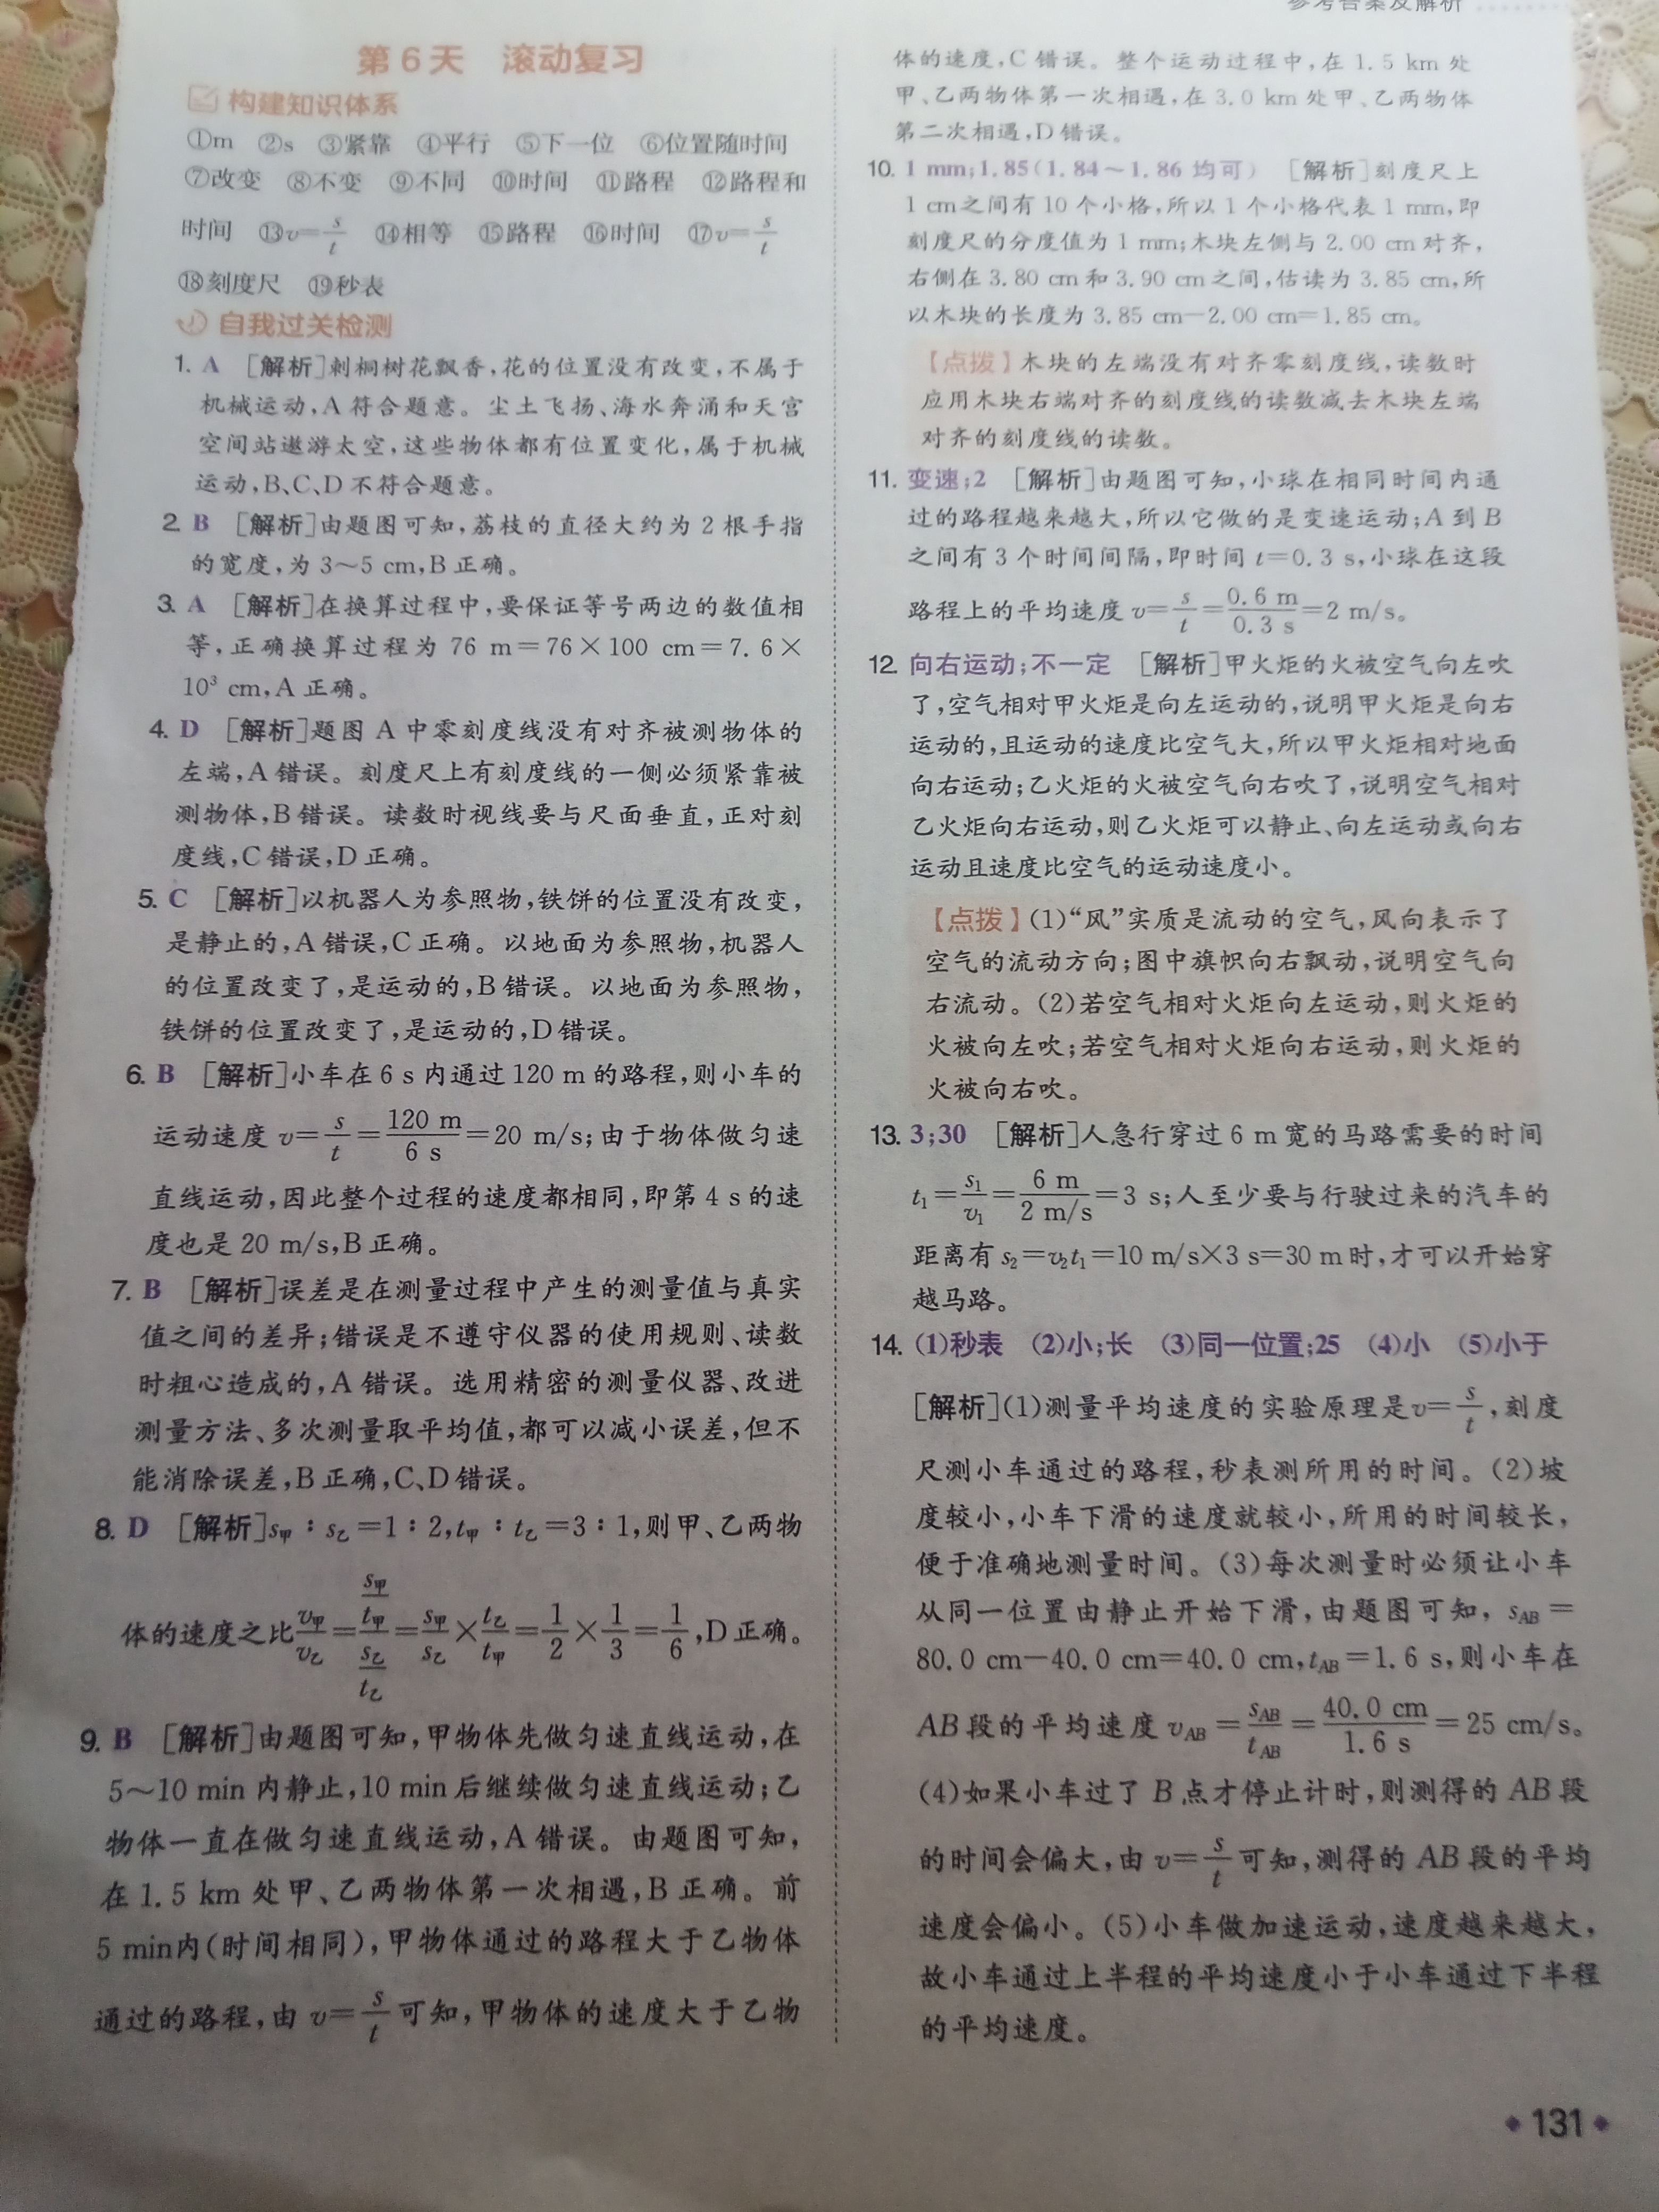 参考答案及解析
第6天 滚动复习
构建知识体系
①m ②s ③紧靠 ④平行 ⑤下一位 ⑥位置随时间
⑦改变 ⑧不变 ⑨不同 ⑩时间 ⑪路程 ⑫路程和
时间 ⑬v=s/t ⑭相等 ⑮路程 ⑯时间 ⑰v=s/t
⑱刻度尺 ⑲秒表
自我过关检测
1. A [解析]刺桐树花飘香,花的位置没有改变,不属于
机械运动,A符合题意。尘土飞扬、海水奔涌和天宫
空间站遨游太空,这些物体都有位置变化,属于机械
运动,B、C、D不符合题意。
2. B [解析]由题图可知,荔枝的直径大约为2根手指
的宽度,为3~5 cm,B正确。
3. A [解析]在换算过程中,要保证等号两边的数值相
等,正确换算过程为76 m=76×100 cm=7.6×
10³ cm,A正确。
4. D [解析]题图A中零刻度线没有对齐被测物体的
左端,A错误。刻度尺上有刻度线的一侧必须紧靠被
测物体,B错误。读数时视线要与尺面垂直,正对刻
度线,C错误,D正确。
5. C [解析]以机器人为参照物,铁饼的位置没有改变,
是静止的,A错误,C正确。以地面为参照物,机器人
的位置改变了,是运动的,B错误。以地面为参照物,
铁饼的位置改变了,是运动的,D错误。
6. B [解析]小车在6 s内通过120 m的路程,则小车的
运动速度v=s/t=120 m/6 s=20 m/s;由于物体做匀速
直线运动,因此整个过程的速度都相同,即第4 s的速
度也是20 m/s,B正确。
7. B [解析]误差是在测量过程中产生的测量值与真实
值之间的差异;错误是不遵守仪器的使用规则、读数
时粗心造成的,A错误。选用精密的测量仪器、改进
测量方法、多次测量取平均值,都可以减小误差,但不
能消除误差,B正确,C、D错误。
8. D [解析]s甲:s乙=1:2,t甲:t乙=3:1,则甲、乙两物
体的速度之比v甲/v乙=(s甲/t甲)/(s乙/t乙)=s甲/s乙×t乙/t甲=1/2×1/3=1/6,D正确。
9. B [解析]由题图可知,甲物体先做匀速直线运动,在
5~10 min内静止,10 min后继续做匀速直线运动;乙
物体一直在做匀速直线运动,A错误。由题图可知,
在1.5 km处甲、乙两物体第一次相遇,B正确。前
5 min内(时间相同),甲物体通过的路程大于乙物体
通过的路程,由v=s/t可知,甲物体的速度大于乙物
体的速度,C错误。整个运动过程中,在1.5 km处
甲、乙两物体第一次相遇,在3.0 km处甲、乙两物体
第二次相遇,D错误。
10. 1 mm;1.85(1.84~1.86均可) [解析]刻度尺上
1 cm之间有10个小格,所以1个小格代表1 mm,即
刻度尺的分度值为1 mm;木块左侧与2.00 cm对齐,
右侧在3.80 cm和3.90 cm之间,估读为3.85 cm,所
以木块的长度为3.85 cm-2.00 cm=1.85 cm。
【点拨】木块的左端没有对齐零刻度线,读数时
应用木块右端对齐的刻度线的读数减去木块左端
对齐的刻度线的读数。
11. 变速;2 [解析]由题图可知,小球在相同时间内通
过的路程越来越大,所以它做的是变速运动;A到B
之间有3个时间间隔,即时间t=0.3 s,小球在这段
路程上的平均速度v=s/t=0.6 m/0.3 s=2 m/s。
12. 向右运动;不一定 [解析]甲火炬的火被空气向左吹
了,空气相对甲火炬是向左运动的,说明甲火炬是向右
运动的,且运动的速度比空气大,所以甲火炬相对地面
向右运动;乙火炬的火被空气向右吹了,说明空气相对
乙火炬向右运动,则乙火炬可以静止、向左运动或向右
运动且速度比空气的运动速度小。
【点拨】(1)“风”实质是流动的空气,风向表示了
空气的流动方向;图中旗帜向右飘动,说明空气向
右流动。(2)若空气相对火炬向左运动,则火炬的
火被向左吹;若空气相对火炬向右运动,则火炬的
火被向右吹。
13. 3;30 [解析]人急行穿过6 m宽的马路需要的时间
t₁=s₁/v₁=6 m/2 m/s=3 s;人至少要与行驶过来的汽车的
距离有s₂=v₂t₁=10 m/s×3 s=30 m时,才可以开始穿
越马路。
14. (1)秒表 (2)小;长 (3)同一位置;25 (4)小 (5)小于
[解析](1)测量平均速度的实验原理是v=s/t,刻度
尺测小车通过的路程,秒表测所用的时间。(2)坡
度较小,小车下滑的速度就较小,所用的时间较长,
便于准确地测量时间。(3)每次测量时必须让小车
从同一位置由静止开始下滑,由题图可知,sAB=
80.0 cm-40.0 cm=40.0 cm,tAB=1.6 s,则小车在
AB段的平均速度vAB=sAB/tAB=40.0 cm/1.6 s=25 cm/s。
(4)如果小车过了B点才停止计时,则测得的AB段
的时间会偏大,由v=s/t可知,测得的AB段的平均
速度会偏小。(5)小车做加速运动,速度越来越大,
故小车通过上半程的平均速度小于小车通过下半程
的平均速度。
131